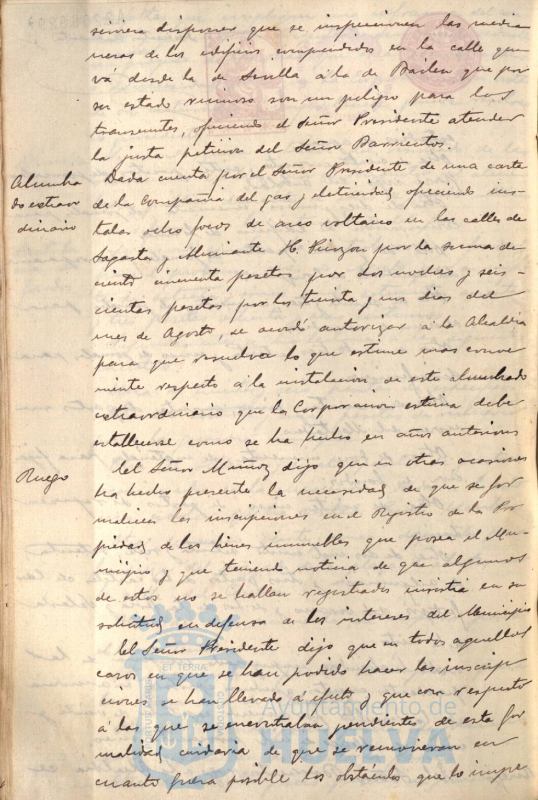 sirviera disponer que se inspeccionen las media
neras de los edificios comprendidos en la calle que
vá desde la de Sevilla á la de Bailen que por
su estado ruinoso son un peligro para los
transeuntes, ofreciendo el Señor Presidente atender
la justa peticion del Señor Barrientos.
Alumbra
do extraor
dinario
Dada cuenta por el Señor Presidente de una carta
de la Compañia del gas y electricidad ofreciendo ins-
talar ocho focos de arco voltaico en las calles de
Sagasta y Almirante H. Pinzon por la suma de
ciento cincuenta pesetas por dos noches y seis-
cientas pesetas por los treinta y un dias del
mes de Agosto, se acordó autorizar á la Alcaldia
para que resuelva lo que estime mas conve
niente respecto á la instalacion de este alumbrado
extraordinario que la Corporacion estima debe
establecerse como se ha hecho en años anteriores
Ruego
El Señor Muñoz dijo que en otras ocasiones
ha hecho presente la necesidad de que se for
malicen las inscripciones en el Registro de la Pro
piedad de los bienes inmuebles que posea el Mu-
nicipio y que teniendo noticia de que algunos
de estos no se hallan registrados insistia en su
solicitud en defensa de los intereses del Municipio
El Señor Presidente dijo que en todos aquellos
casos en que se han podido hacer las inscrip
ciones se han llevado á efecto y que con respecto
á las que se encontraban pendientes de esta for
malidad cuidaria de que se removieran en
cuanto fuera posible los obstáculos que lo impi
ET TERRA
Ayuntamiento de
HUELVA